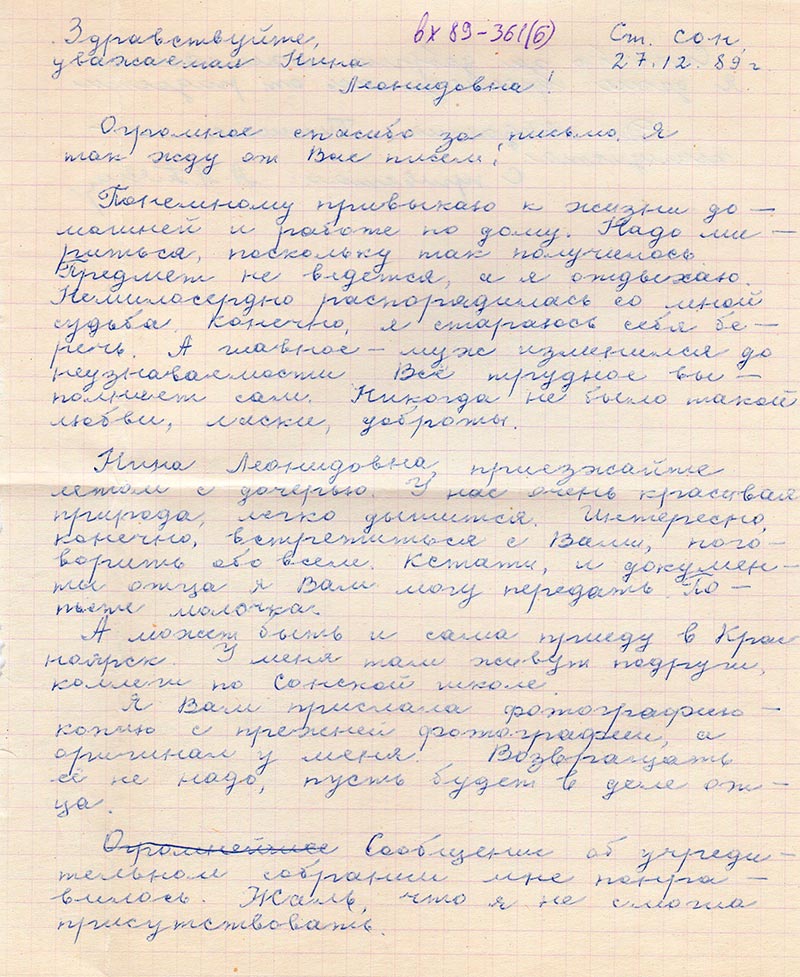 Здравствуйте, вх 89-361(б) Ст. Сон,
уважаемая Нина 27.12.89 г.
Леонидовна!
Огромное спасибо за письмо. Я
так жду от Вас писем!
Понемногому привыкаю к жизни до-
машней и работе по дому. Надо ми-
риться, поскольку так получилось.
Предмет не ведётся, а я отдыхаю.
Немилосердно распорядилась со мной
судьба. Конечно, я стараюсь себя бе-
речь. А главное - муж изменился до
неузнаваемости. Всё трудное вы-
полняет сам. Никогда не было такой
любви, ласки, доброты.
Нина Леонидовна, приезжайте
летом с дочерью. У нас очень красивая
природа, легко дышится. Интересно,
конечно, встретиться с Вами, пого-
ворить обо всем. Кстати, и докумен-
ты отца я Вам могу передать. По-
пьете молочка.
А может быть и сама приеду в Крас
ноярск. У меня там живут подруги,
коллеги по Сонской школе.
Я Вам прислала фотографию-
копию с прежней фотографии, а
оригинал у меня. Возвращать
её не надо, пусть будет в деле от-
ца.
Огромнейшее Сообщение об учреди-
тельном собрании мне понра-
вилось. Жаль, что я не смогла
присутствовать.